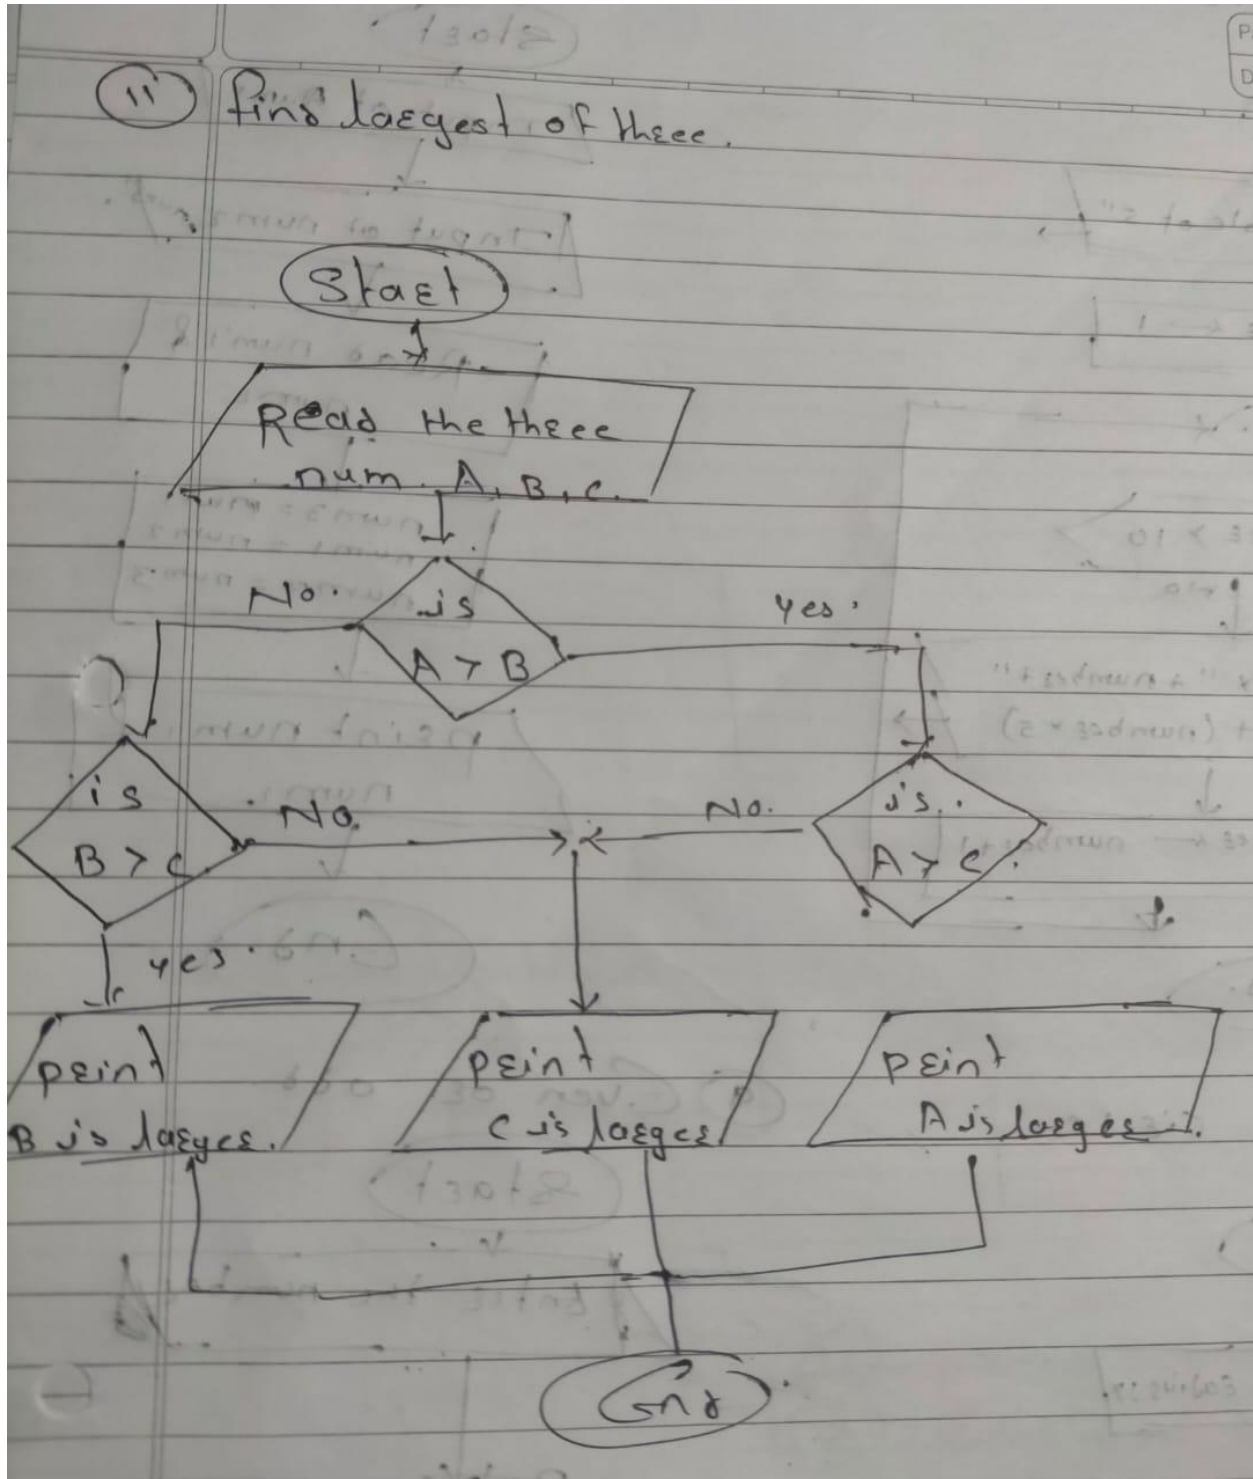 11 find largest of three.
Start
Read the three
num. A, B, C.
No.
is
A > B
yes.
is
B > C
No.
No.
is.
A > C.
yes.
print
B is larger.
print
C is larger
print
A is larger.
End